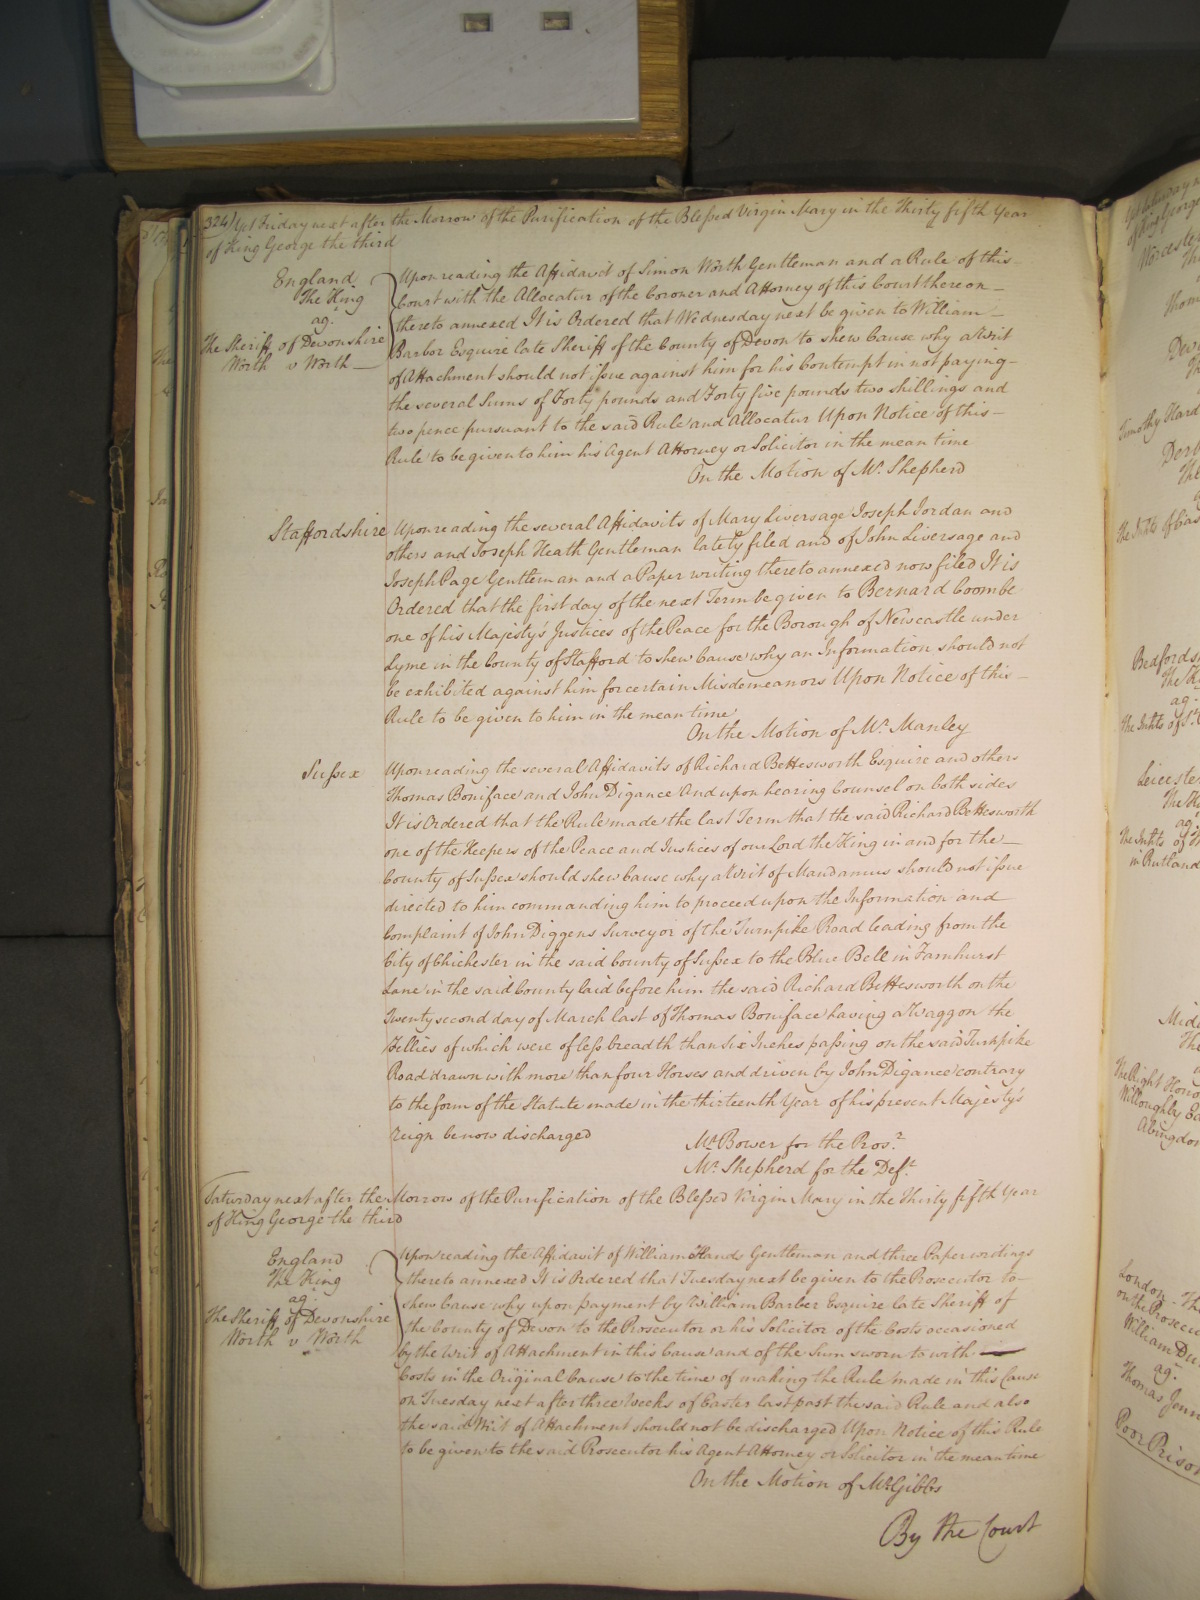 324) Yet Friday next after the Morrow of the Purification of the Blessed Virgin Mary in the Thirty fifth Year
of King George the third
England
The King
ag.
The Sheriff of Devonshire
Worth v Worth
Upon reading the Affidavit of Simon Worth Gentleman and a Rule of this
Court with the Allocatur of the Coroner and Attorney of this Court thereon
thereto annexed It is Ordered that Wednesday next be given to William
Barbor Esquire late Sheriff of the County of Devon to shew Cause why a Writ
of Attachment should not issue against him for his Contempt in not paying
the several Sums of Forty pounds and Forty five pounds two shillings and
two pence pursuant to the said Rule and Allocatur Upon Notice of this
Rule to be given to him his Agent Attorney or Solicitor in the mean time
On the Motion of Mr. Shepherd
Staffordshire
Upon reading the several Affidavits of Mary Liversage Joseph Jordan and
others and Joseph Heath Gentleman lately filed and of John Liversage and
Joseph Page Gentleman and a Paper writing thereto annexed now filed It is
Ordered that the first day of the next Term be given to Bernard Coombe
one of his Majesty's Justices of the Peace for the Borough of Newcastle under
Lyme in the County of Stafford to shew Cause why an Information should not
be exhibited against him for certain Misdemeanors Upon Notice of this
Rule to be given to him in the mean time
On the Motion of Mr. Manley
Sussex
Upon reading the several Affidavits of Richard Bettesworth Esquire and others
Thomas Boniface and John Digance And upon hearing Counsel on both sides
It is Ordered that the Rule made the last Term that the said Richard Bettesworth
one of the Keepers of the Peace and Justices of our Lord the King in and for the
County of Sussex should shew Cause why a Writ of Mandamus should not issue
directed to him commanding him to proceed upon the Information and
Complaint of John Diggens Surveyor of the Turnpike Road leading from the
City of Chichester in the said County of Sussex to the Blue Bell in Farnhurst
Lane in the said County laid before him the said Richard Bettesworth on the
Twenty second day of March last of Thomas Boniface having a Waggon the
Fellies of which were of less breadth than Six Inches passing on the said Turnpike
Road drawn with more than four Horses and driven by John Digance contrary
to the form of the Statute made in the thirteenth Year of his present Majesty's
reign be now discharged
Mr. Bower for the Pros.r
Mr. Shepherd for the Def.t
Saturday next after the Morrow of the Purification of the Blessed Virgin Mary in the Thirty fifth Year
of King George the third
England
The King
ag.
The Sheriff of Devonshire
Worth v Worth
Upon reading the Affidavit of William Hands Gentleman and three Paper writings
thereto annexed It is Ordered that Tuesday next be given to the Prosecutor to
shew Cause why upon payment by William Barber Esquire late Sheriff of
the County of Devon to the Prosecutor or his Solicitor of the Costs occasioned
by the Writ of Attachment in this Cause and of the Sum sworn to with
Costs in the Original Cause to the time of making the Rule made in this Cause
on Tuesday next after three Weeks of Easter last past the said Rule and also
the said Writ of Attachment should not be discharged Upon Notice of this Rule
to be given to the said Prosecutor his Agent Attorney or Solicitor in the mean time
On the Motion of Mr. Gibbs
By the Court
Timothy Hard
ag.
Leicester
ag.
in Rutland
The Right Hono
Willoughby Ea
Abingdon
London
on the Prosecu
William Du
ag.
Thomas Jenn
Poor Prison